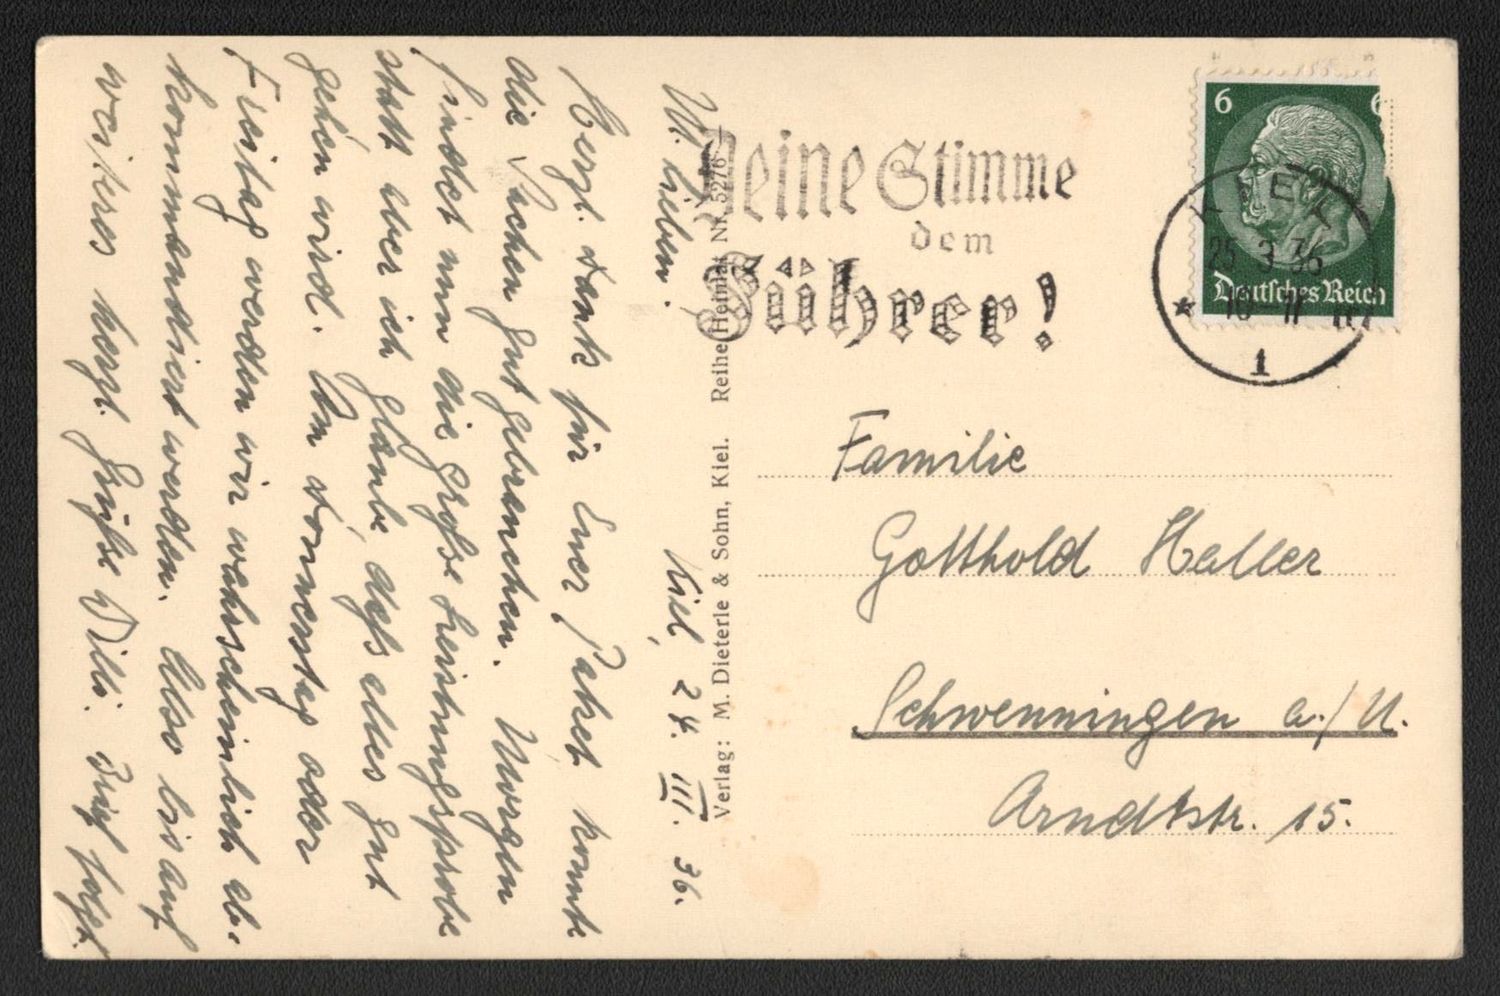 M. lieben.
Kiel, 24. III. 36.
Herzl. Dank für Euer Paket konnte
die Sachen gut gebrauchen. Morgen
findet nun die große Leistungsprobe
statt aber ich glaube, daß alles gut
gehen wird. Am Donnerstag oder
Freitag werden wir wahrscheinlich ab-
kommandiert werden. Also bis auf
weiteres herzl. Grüße Willi. Brief folgt.
Verlag: M. Dieterle & Sohn, Kiel. Reihe Heimat Nr. 5276
Deine Stimme
dem
Führer!
6 6
Deutsches Reich
KIEL
25.3.36
1
Familie
Gotthold Haller
Schwenningen a./N.
Arndtstr. 15.